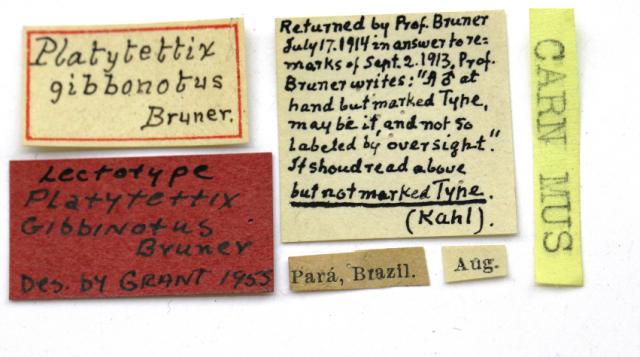 Platytettix
gibbonotus
Bruner.
Lectotype
Platytettix
Gibbinotus
Bruner
Des. by GRANT 1955
Returned by Prof. Bruner
July 17. 1914 in answer to re=
marks of Sept. 2. 1913, Prof.
Bruner writes: "A ♂ at
hand but marked Type,
may be it, and not so
labeled by oversight."
It shoud read above
but not marked Type.
(Kahl).
Pará, Brazil.
Aug.
CARN MUS